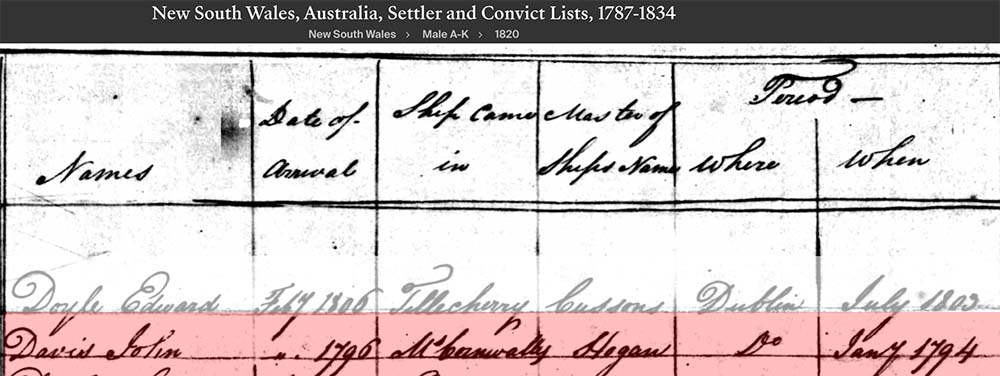 New South Wales, Australia, Settler and Convict Lists, 1787-1834
New South Wales > Male A-K > 1820
Names
Date of Arrival
Ship Came in
Master of Ships Name
Period —
Where
When
Doyle Edward Feby 1806 Tillecherry Cussons Dublin July 1803
Davis John " 1796 Ms Cornwally Hogan Do Jany 1794